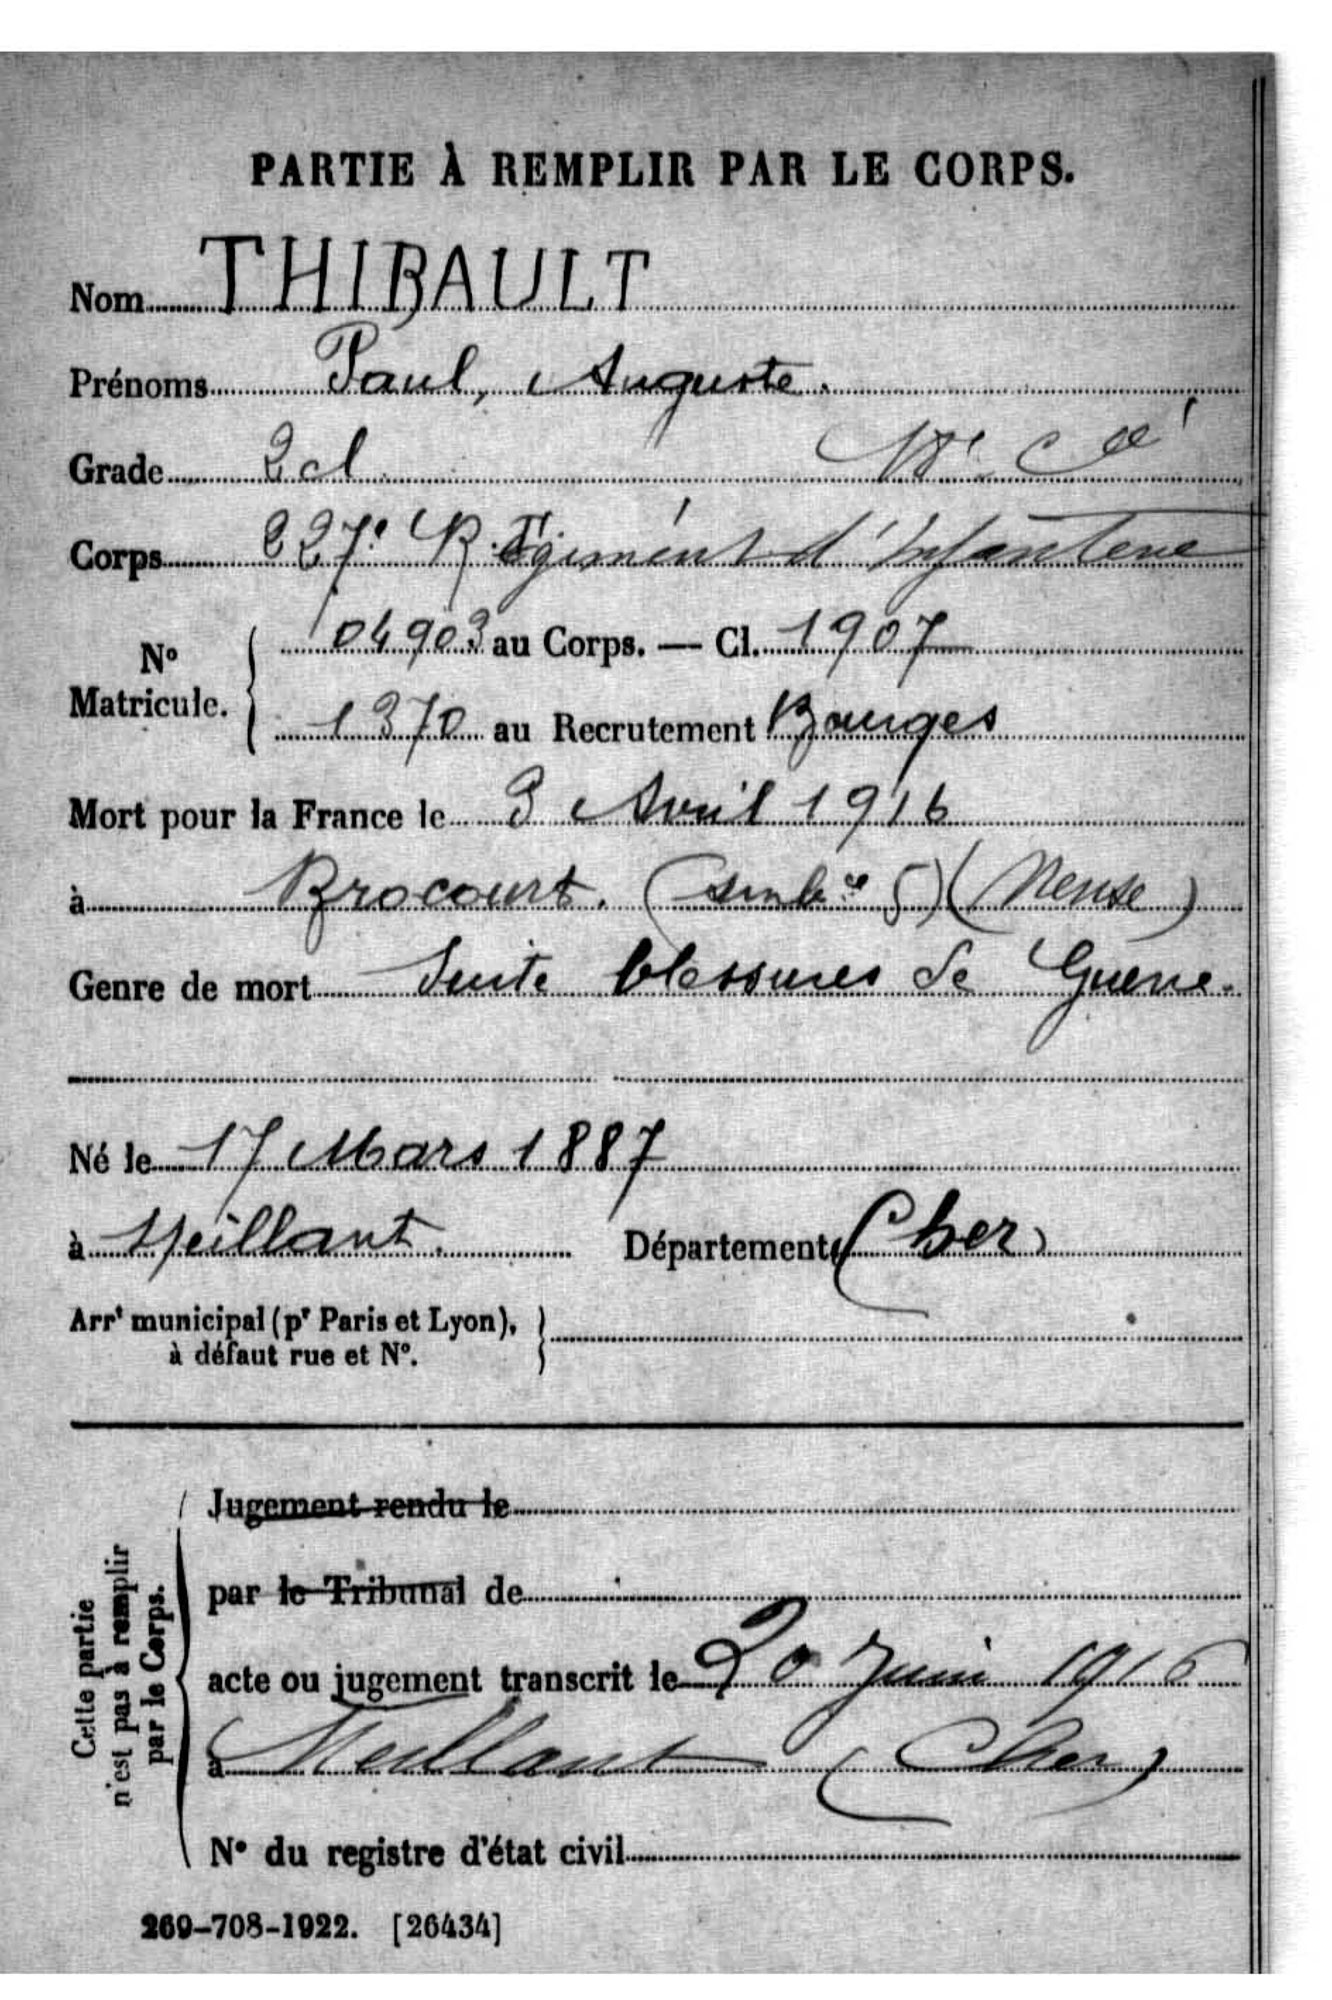 PARTIE À REMPLIR PAR LE CORPS.
Nom THIBAULT
Prénoms Paul, Auguste.
Grade 2 cl
Corps 227e Régiment d'Infanterie
No Matricule. 04903 au Corps. — Cl. 1907
1370 au Recrutement Bourges
Mort pour la France le 3 Avril 1916
à Brocourt. (ambce 5) (Meuse)
Genre de mort Suite blessures de Guerre.
Né le 17 Mars 1887
à Meillant. Département (Cher)
Arrt municipal (pr Paris et Lyon),
à défaut rue et No.
Cette partie
n'est pas à remplir
par le Corps.
Jugement rendu le
par le Tribunal de
acte ou jugement transcrit le 20 Juin 1916
à Meillant (Cher)
No du registre d'état civil
269-708-1922. [26434]